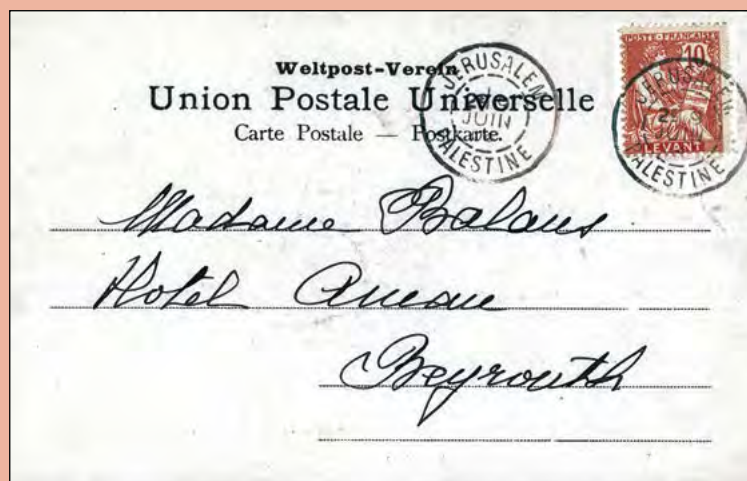 Weltpost-Verein
Union Postale Universelle
Carte Postale — Postkarte.
JERUSALEM
JUIN
PALESTINE
POSTE FRANÇAISE
10
LEVANT
JERUSALEM
JUIN
PALESTINE
Madame Balans
Hotel
Beyrouth